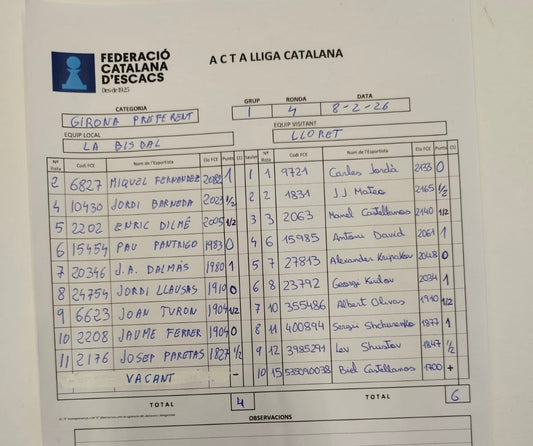 FEDERACIÓ
CATALANA
D'ESCACS
Des de 1925
A C T A LLIGA CATALANA
CATEGORIA GRUP RONDA DATA
GIRONA PREFERENT 1 4 8-2-26
EQUIP LOCAL EQUIP VISITANT
LA BISBAL LLORET
Nº llista Codi FCE Nom de l'Esportista Elo FCE Punts (1) Tauler Nº llista Codi FCE Nom de l'Esportista Elo FCE Punts (1)
2 6827 MIQUEL FERNANDEZ 2082 1 1 1 9721 Carles Jordà 2133 0
4 10430 JORDI BARNEDA 2023 1/2 2 2 1831 JJ Mateo 2165 1/2
5 2202 ENRIC DILMÉ 2005 1/2 3 3 2063 Manel Castellanos 2140 1/2
6 15454 PAU PANTRIGO 1983 0 4 6 15985 Antoni David 2061 1
7 20346 J.A. DALMÁS 1980 1 5 7 27813 Alexander Kupakov 2048 0
8 24754 JORDI LLAUSAS 1910 0 6 8 23792 Georgy Kurlov 2034 1
9 6623 JOAN TURON 1904 1/2 7 10 355486 Albert Olivas 1910 1/2
10 2208 JAUME FERRER 1904 0 8 11 400894 Sergii Shchurenko 1877 1
11 2176 JOSEP PARETAS 1827 1/2 9 12 3985291 Lev Shustov 1847 1/2
VACANT - 10 15 535090038 Biel Castellanos 1700 +
TOTAL 4 TOTAL 6
OBSERVACIONS